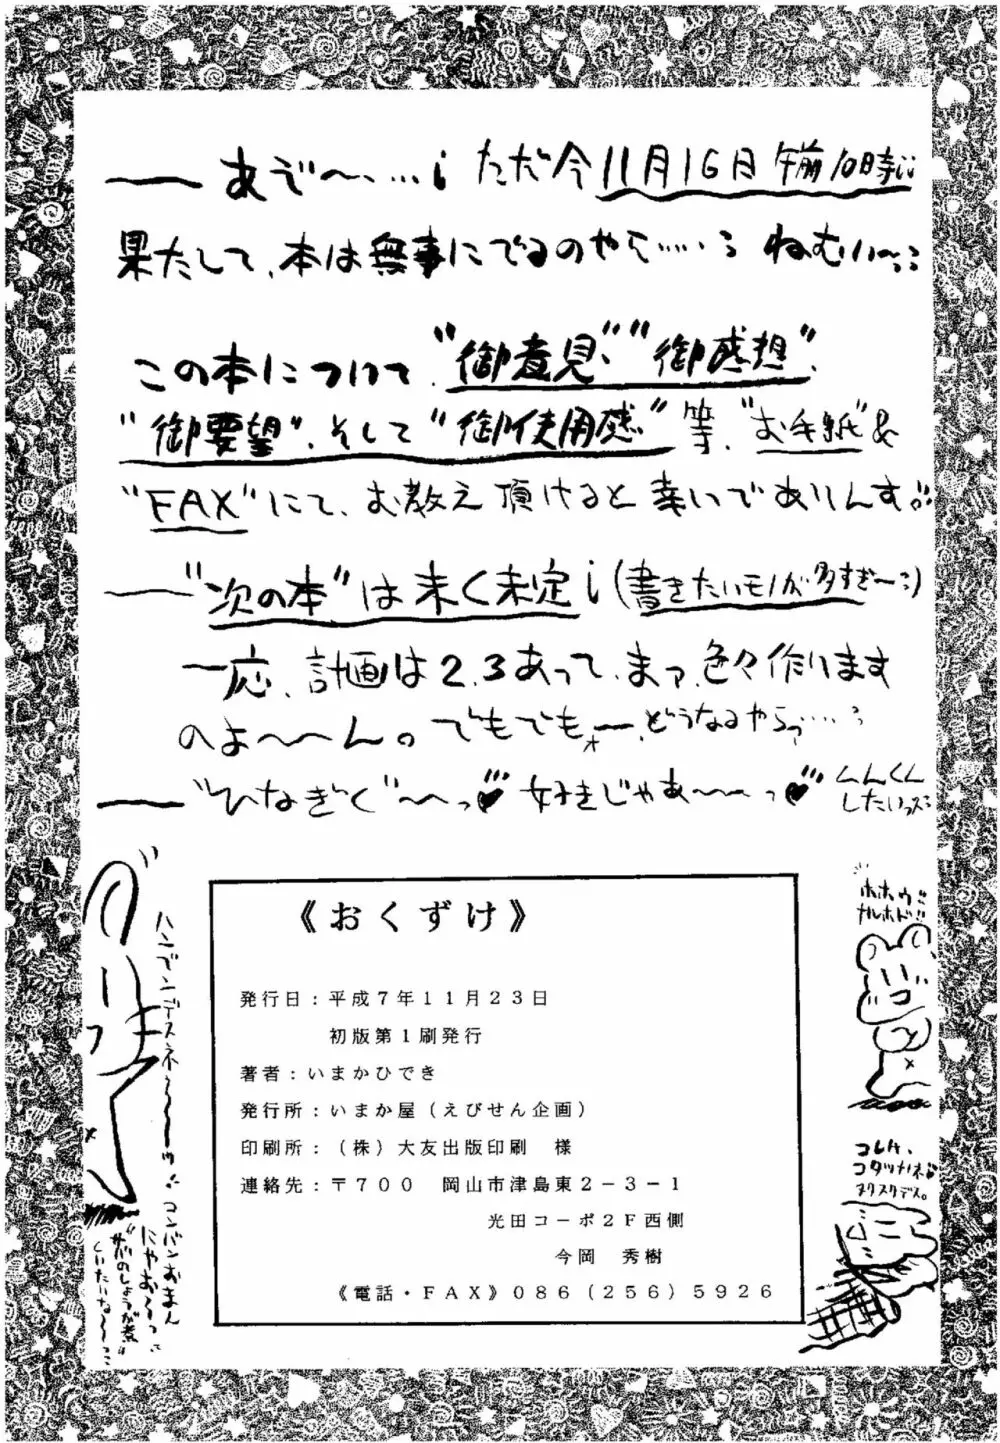 あぞ〜…! ただ今11月16日午前10時!!
果たして、本は無事にでるのやら……? ねむい〜?
この本について、"御意見"、"御感想"、
"御要望"、そして"御使用感"等、"お手紙"&
"FAX"にて、お教え頂けると幸いでありんす!!
"次の本"は未く未定!(書きたいモノが多すぎ〜?)
一応、計画は2.3あって、まァ、色々作ります
のよ〜〜ん。でもでもォー、どうなるやらっ……?
"ひなぎく"〜っ♥ 好きじゃあ〜〜っ♥ くんくん
したいっス?
ホホウ!!
ナルホド!!
コレハ、
コタツナネコ
ヌクヌクデス。
ハンブンデスネ〜〜ッ!!
コンバンおまん
にゃお〜っ
"サバのしょうが煮"
くいたいな〜っ
《おくずけ》
発行日:平成7年11月23日
初版第1刷発行
著者:いまかひでき
発行所:いまか屋(えびせん企画)
印刷所:(株)大友出版印刷 様
連絡先:〒700 岡山市津島東2-3-1
光田コーポ2F西側
今岡 秀樹
《電話・FAX》086(256)5926